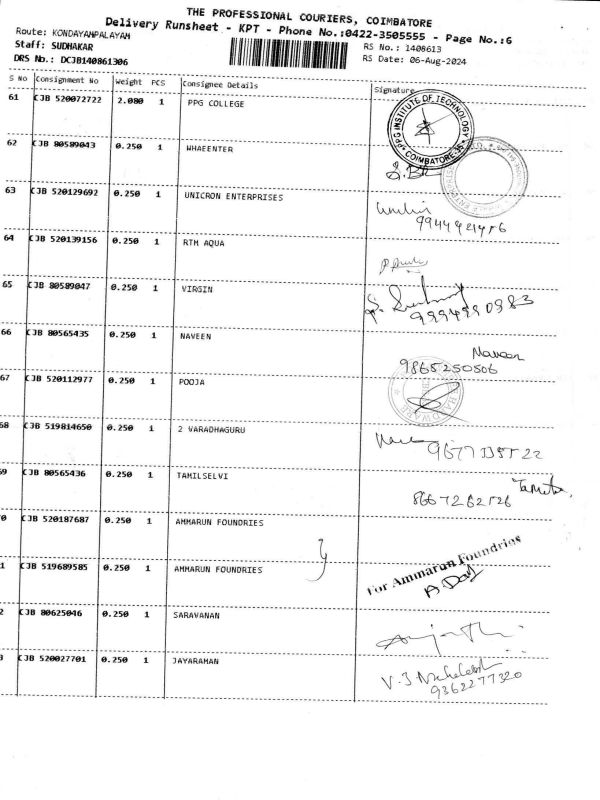 THE PROFESSIONAL COURIERS, COIMBATORE
Delivery Runsheet - KPT - Phone No.:0422-3505555 - Page No.:6
Route: KONDAYAMPALAYAM
Staff: SUDHAKAR
DRS No.: DCJB140861306
RS No.: 1408613
RS Date: 06-Aug-2024
S No Consignment No Weight PCS Consignee Details Signature
61 CJB 520072722 2.080 1 PPG COLLEGE
PPG INSTITUTE OF TECHNOLOGY
COIMBATORE-35
62 CJB 80589043 0.250 1 WHAEENTER
63 CJB 520129692 0.250 1 UNICRON ENTERPRISES
64 CJB 520139156 0.250 1 RTM AQUA
65 CJB 80589047 0.250 1 VIRGIN
66 CJB 80565435 0.250 1 NAVEEN
Naveen
9865250506
67 CJB 520112977 0.250 1 POOJA
68 CJB 519814650 0.250 1 2 VARADHAGURU
69 CJB 80565436 0.250 1 TAMILSELVI
0 CJB 520187687 0.250 1 AMMARUN FOUNDRIES
For Ammarun Foundries
1 CJB 519689585 0.250 1 AMMARUN FOUNDRIES
2 CJB 80625046 0.250 1 SARAVANAN
3 CJB 520027701 0.250 1 JAYARAMAN
9362277320